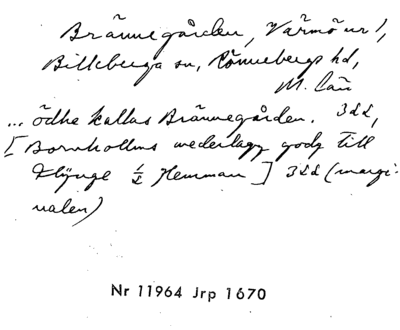 Brännegården, Värmö nr 1,
Billeberga sn, Rönnebergs hd,
M. län
... ödhe kallas Brännegården. 322,
[Bornholms wederlagz godz till
Flÿnge ½ Hemman] 322 (margi-
nalen)
Nr 11964 Jrp 1670